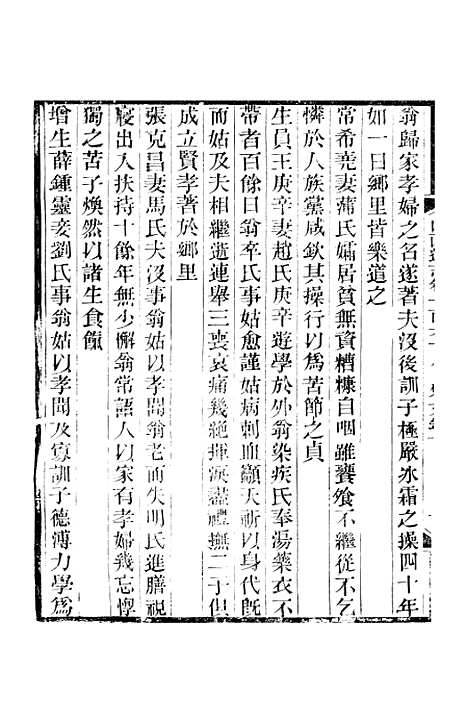 翁歸家孝婦之名遂著夫沒後訓子極嚴冰霜之操四十年
如一日鄉里皆樂道之
常希堯妻蒲氏孀居貧無資糟糠自咽雖饔飧不繼從不乞
憐於人族黨咸欽其操行以為苦節之貞
生員王庚辛妻趙氏庚辛遊學於外翁染疾氏奉湯藥衣不
帶者百餘日翁卒氏事姑愈謹姑病刺血籲天祈以身代旣
而姑及夫相繼逝連舉三喪哀痛幾絕揮淚盡禮撫二子俱
成立賢孝著於鄉里
張克昌妻馬氏夫沒事翁姑以孝聞翁老而失明氏進膳視
寢出入扶持十餘年無少懈翁常語人以家有孝婦幾忘惸
獨之苦子煥然以諸生食餼
增生薛鍾靈妾劉氏事翁姑以孝聞及寡訓子德溥力學為